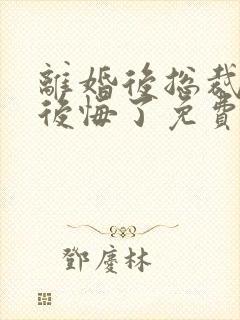 離婚後総裁
後悔了免費
鄧慶林